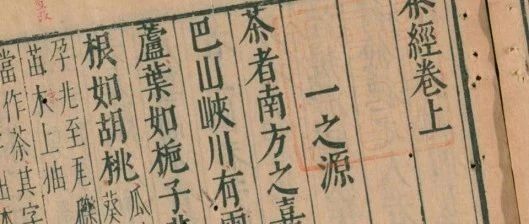 茶經卷上
一之源
茶者南方之嘉
巴山峽川有
蘆葉如梔子
根如胡桃瓜
葵
孕兆至瓦礫
苗木上抽
作茶其字
當